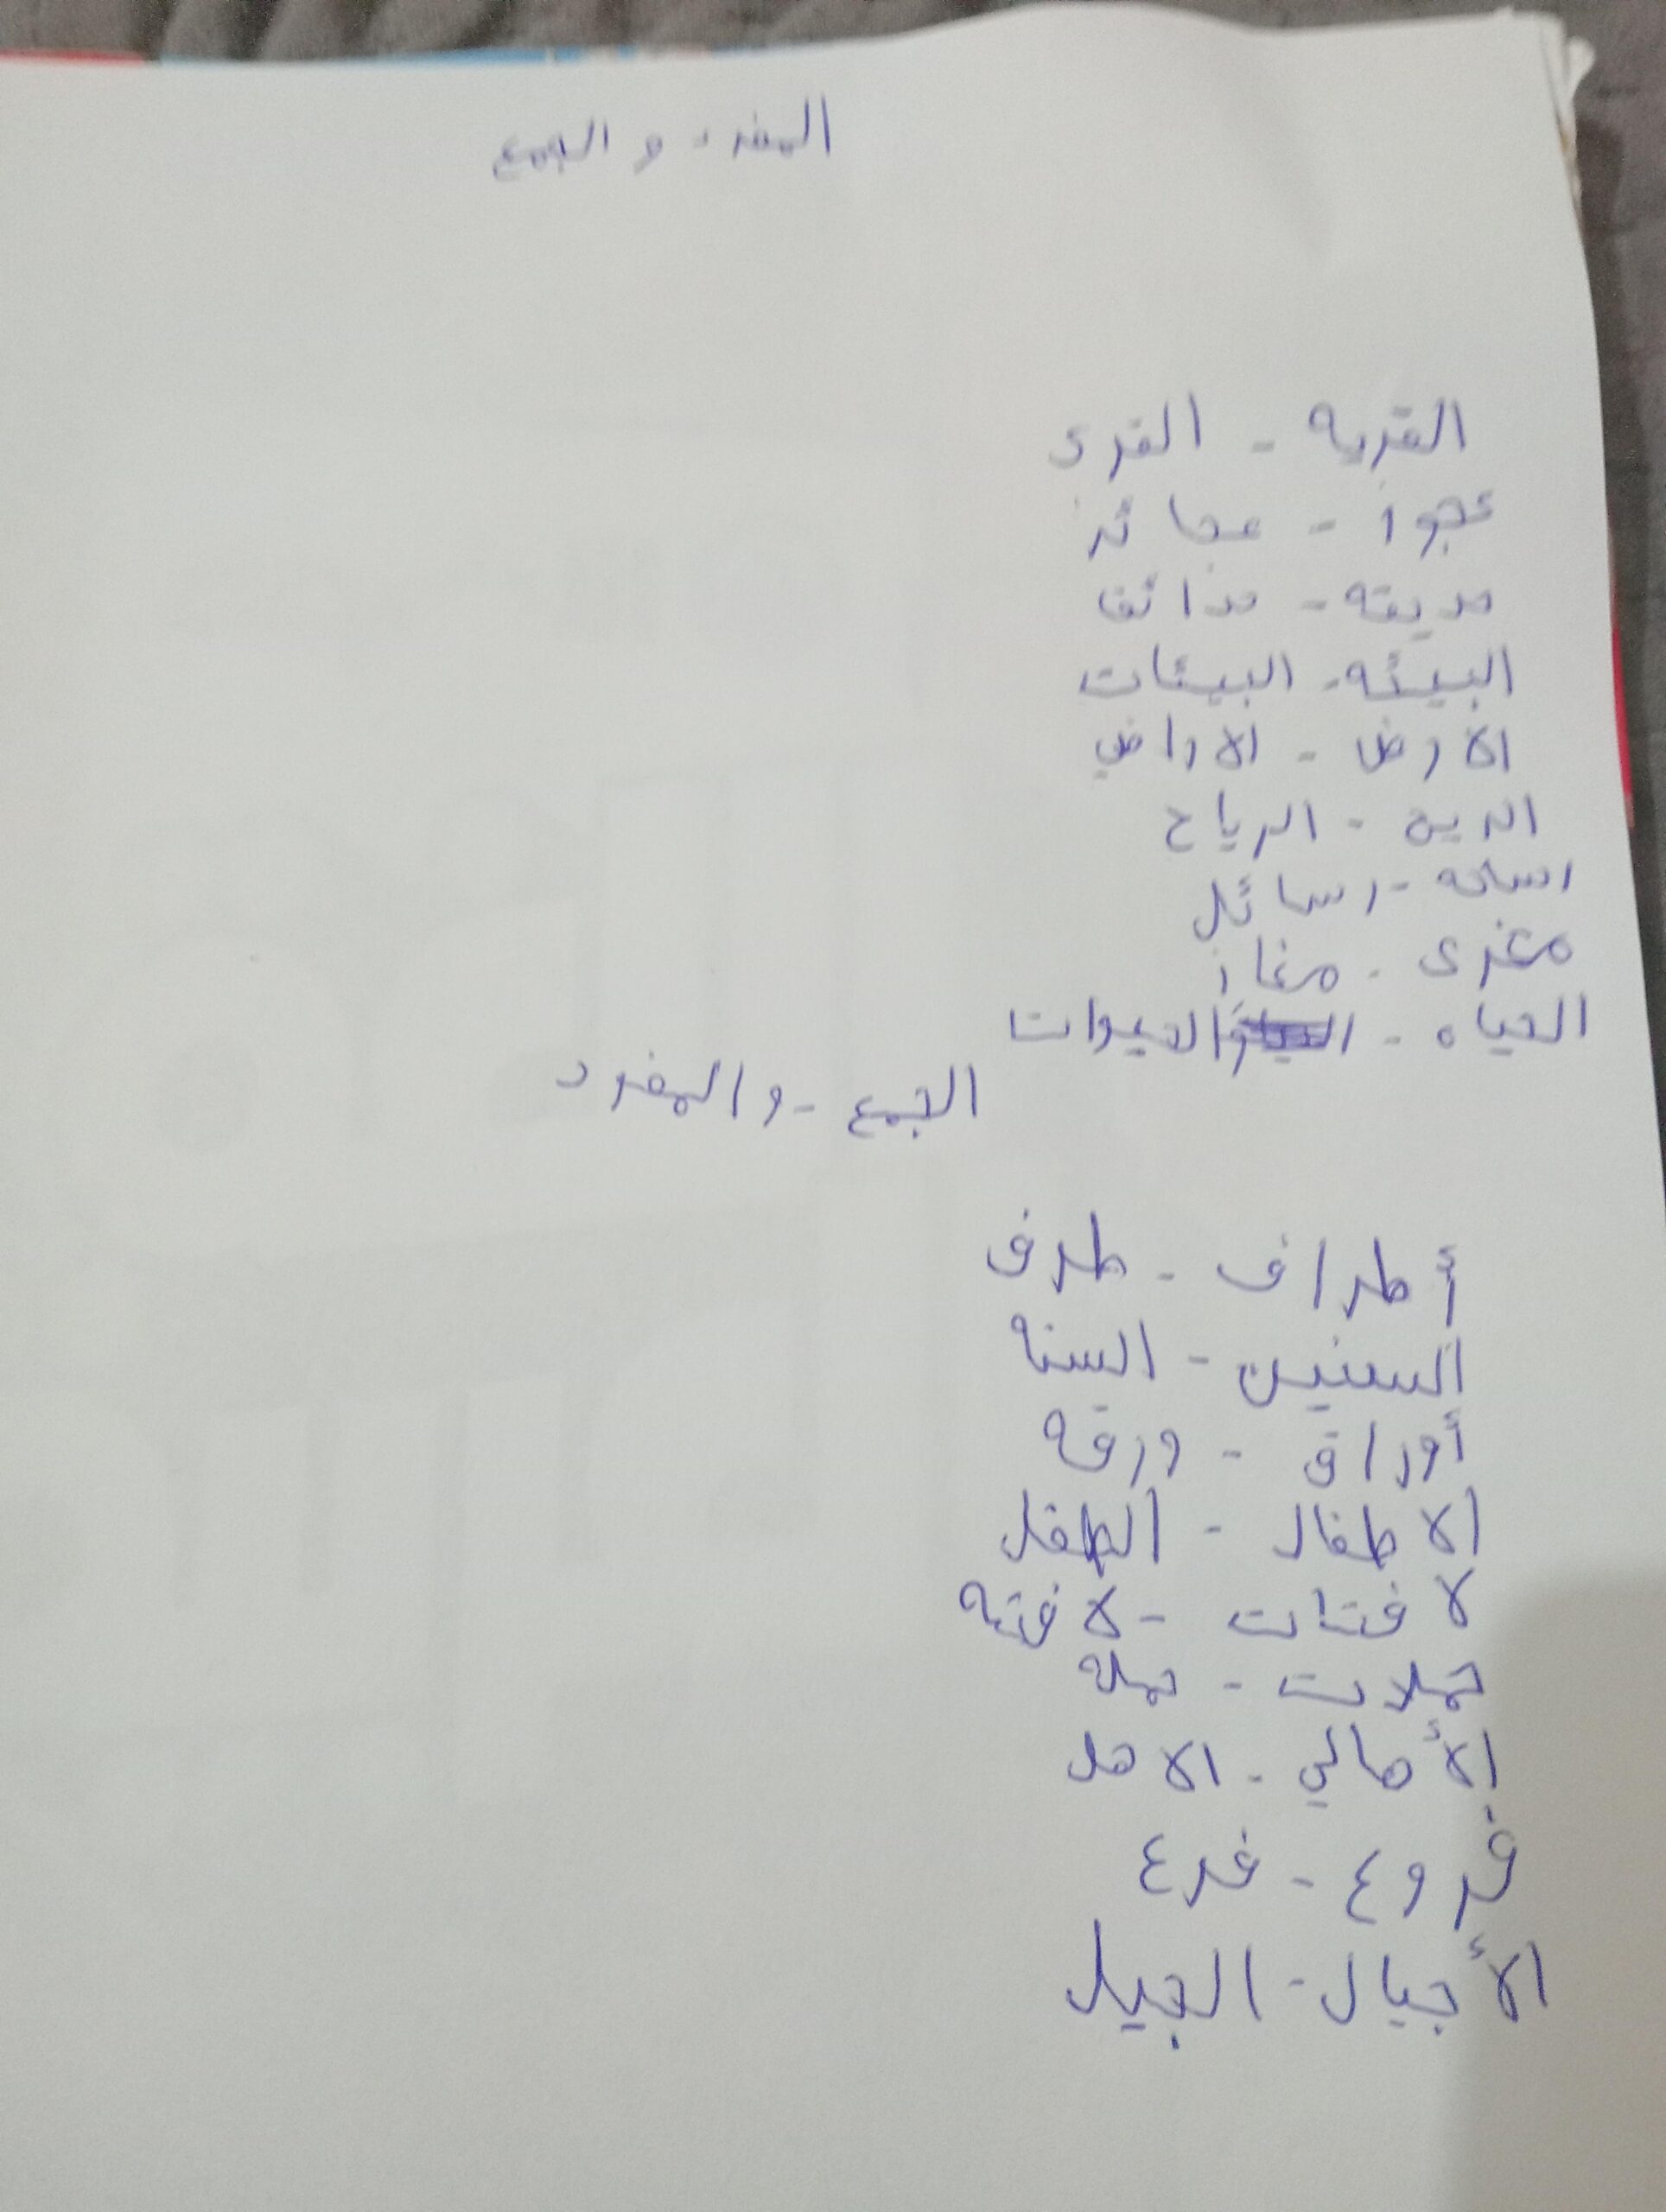 المفرد و الجمع
القريه - القرى
عجوز - عجائز
حديقه - حدائق
البيئه - البيئات
الارض - الاراضي
الريح - الرياح
رساله - رسائل
مغزى - مغاز
الحياه - الحيوات
الجمع - والمفرد
أطراف - طرف
السنين - السنه
أوراق - ورقه
الاطفال - الطفل
لافتات - لافته
حملات - حمله
الأهالي - الاهل
فروع - فرع
الأجيال - الجيل